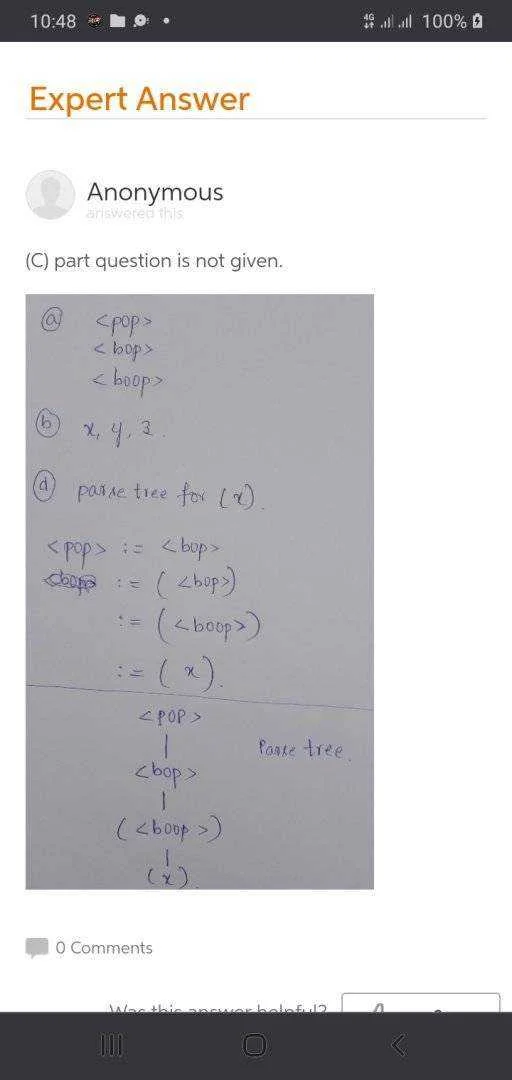 10:48
4G
100%
Expert Answer
Anonymous
answered this
(C) part question is not given.
(a) <pop>
<bop>
<boop>
(b) x, y, z.
(d) parse tree for (x).
<pop> := <bop>
:= ( <bop>)
:= ( <boop>)
:= ( x ).
<POP>
|
Parse tree.
<bop>
|
( <boop >)
|
(x).
0 Comments
Was this answer helpful?